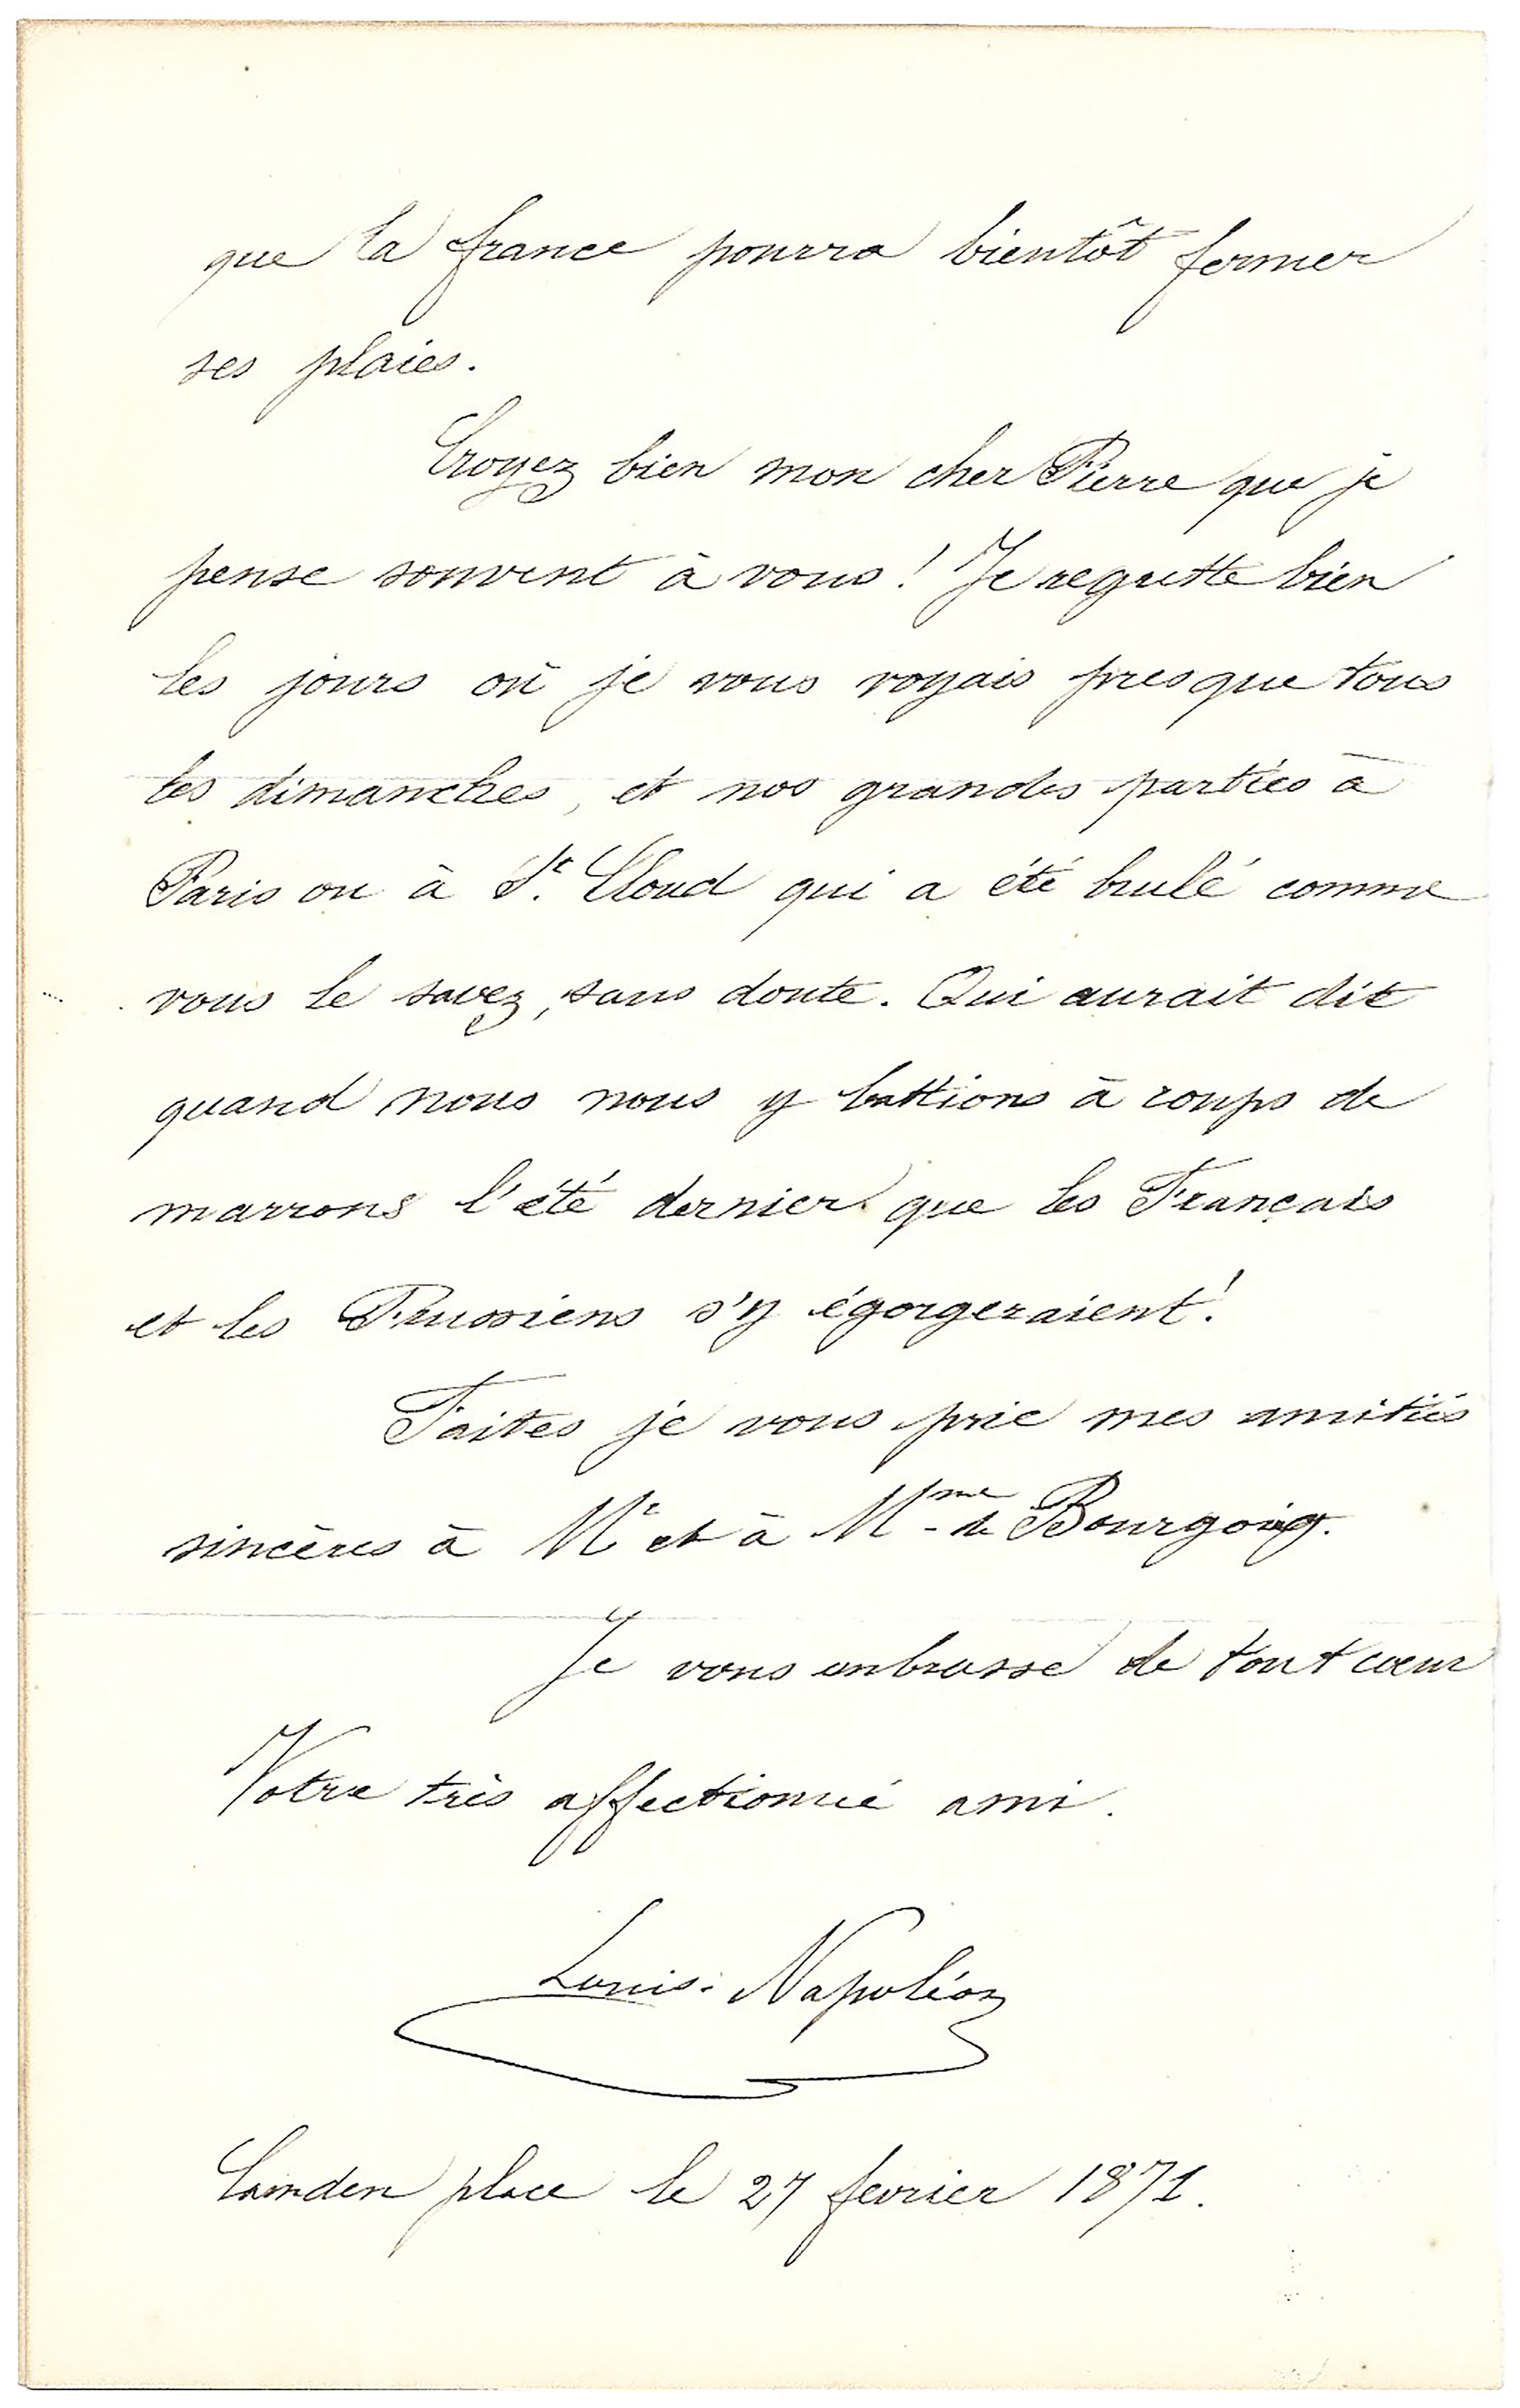 que la france pourra bientôt fermer
ses plaies.
Croyez bien mon cher Pierre que je
pense souvent à vous ! Je regrette bien
les jours où je vous voyais presque tous
les dimanches, et nos grandes parties à
Paris ou à St. Cloud qui a été brulé comme
vous le savez, sans doute. Qui aurait dit
quand nous nous y battions à coups de
marrons l'été dernier que les Français
et les Prussiens s'y égorgeraient !
Faites je vous prie mes amitiés
sincères à Mr et à Mme de Bourgoing.
Je vous embrasse de tout cœur
Votre très affectionné ami.
Louis-Napoléon
Camden place le 27 fevrier 1871.